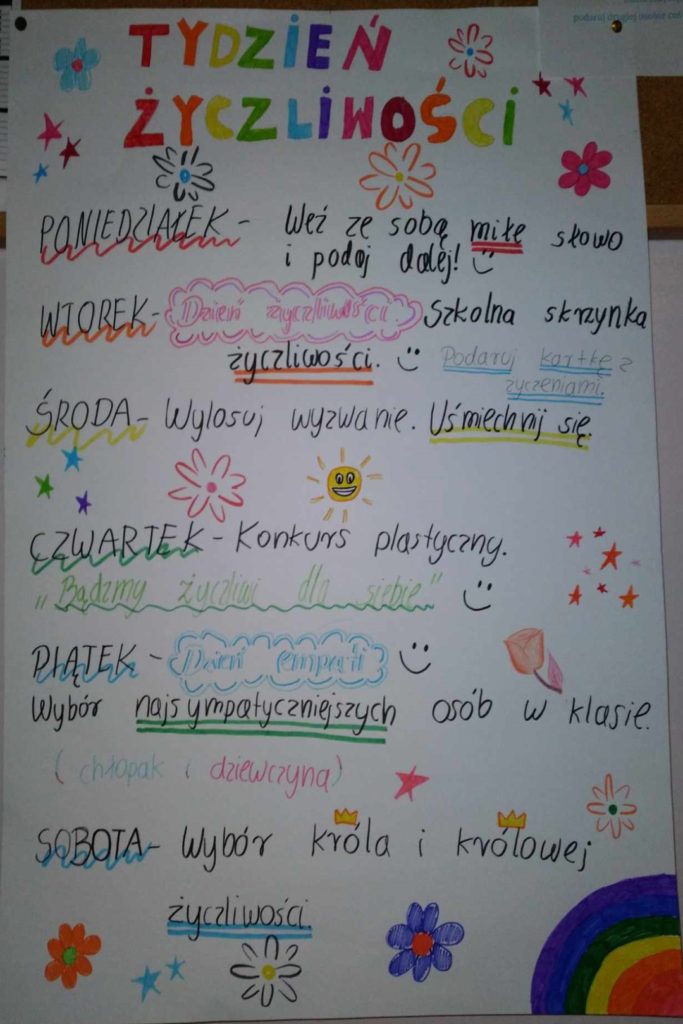 podaruj drugiej osobie coś
TYDZIEŃ
ŻYCZLIWOŚCI
PONIEDZIAŁEK - Weź ze sobą miłe słowo
i podaj dalej!
WTOREK - Dzień życzliwości Szkolna skrzynka
życzliwości. Podaruj kartkę z
życzeniami.
ŚRODA - Wylosuj wyzwanie. Uśmiechnij się.
CZWARTEK - Konkurs plastyczny.
"Bądźmy życzliwi dla siebie"
PIĄTEK - Dzień empatii
Wybór najsympatyczniejszych osób w klasie.
(chłopak i dziewczyna)
SOBOTA - Wybór króla i królowej
życzliwości.